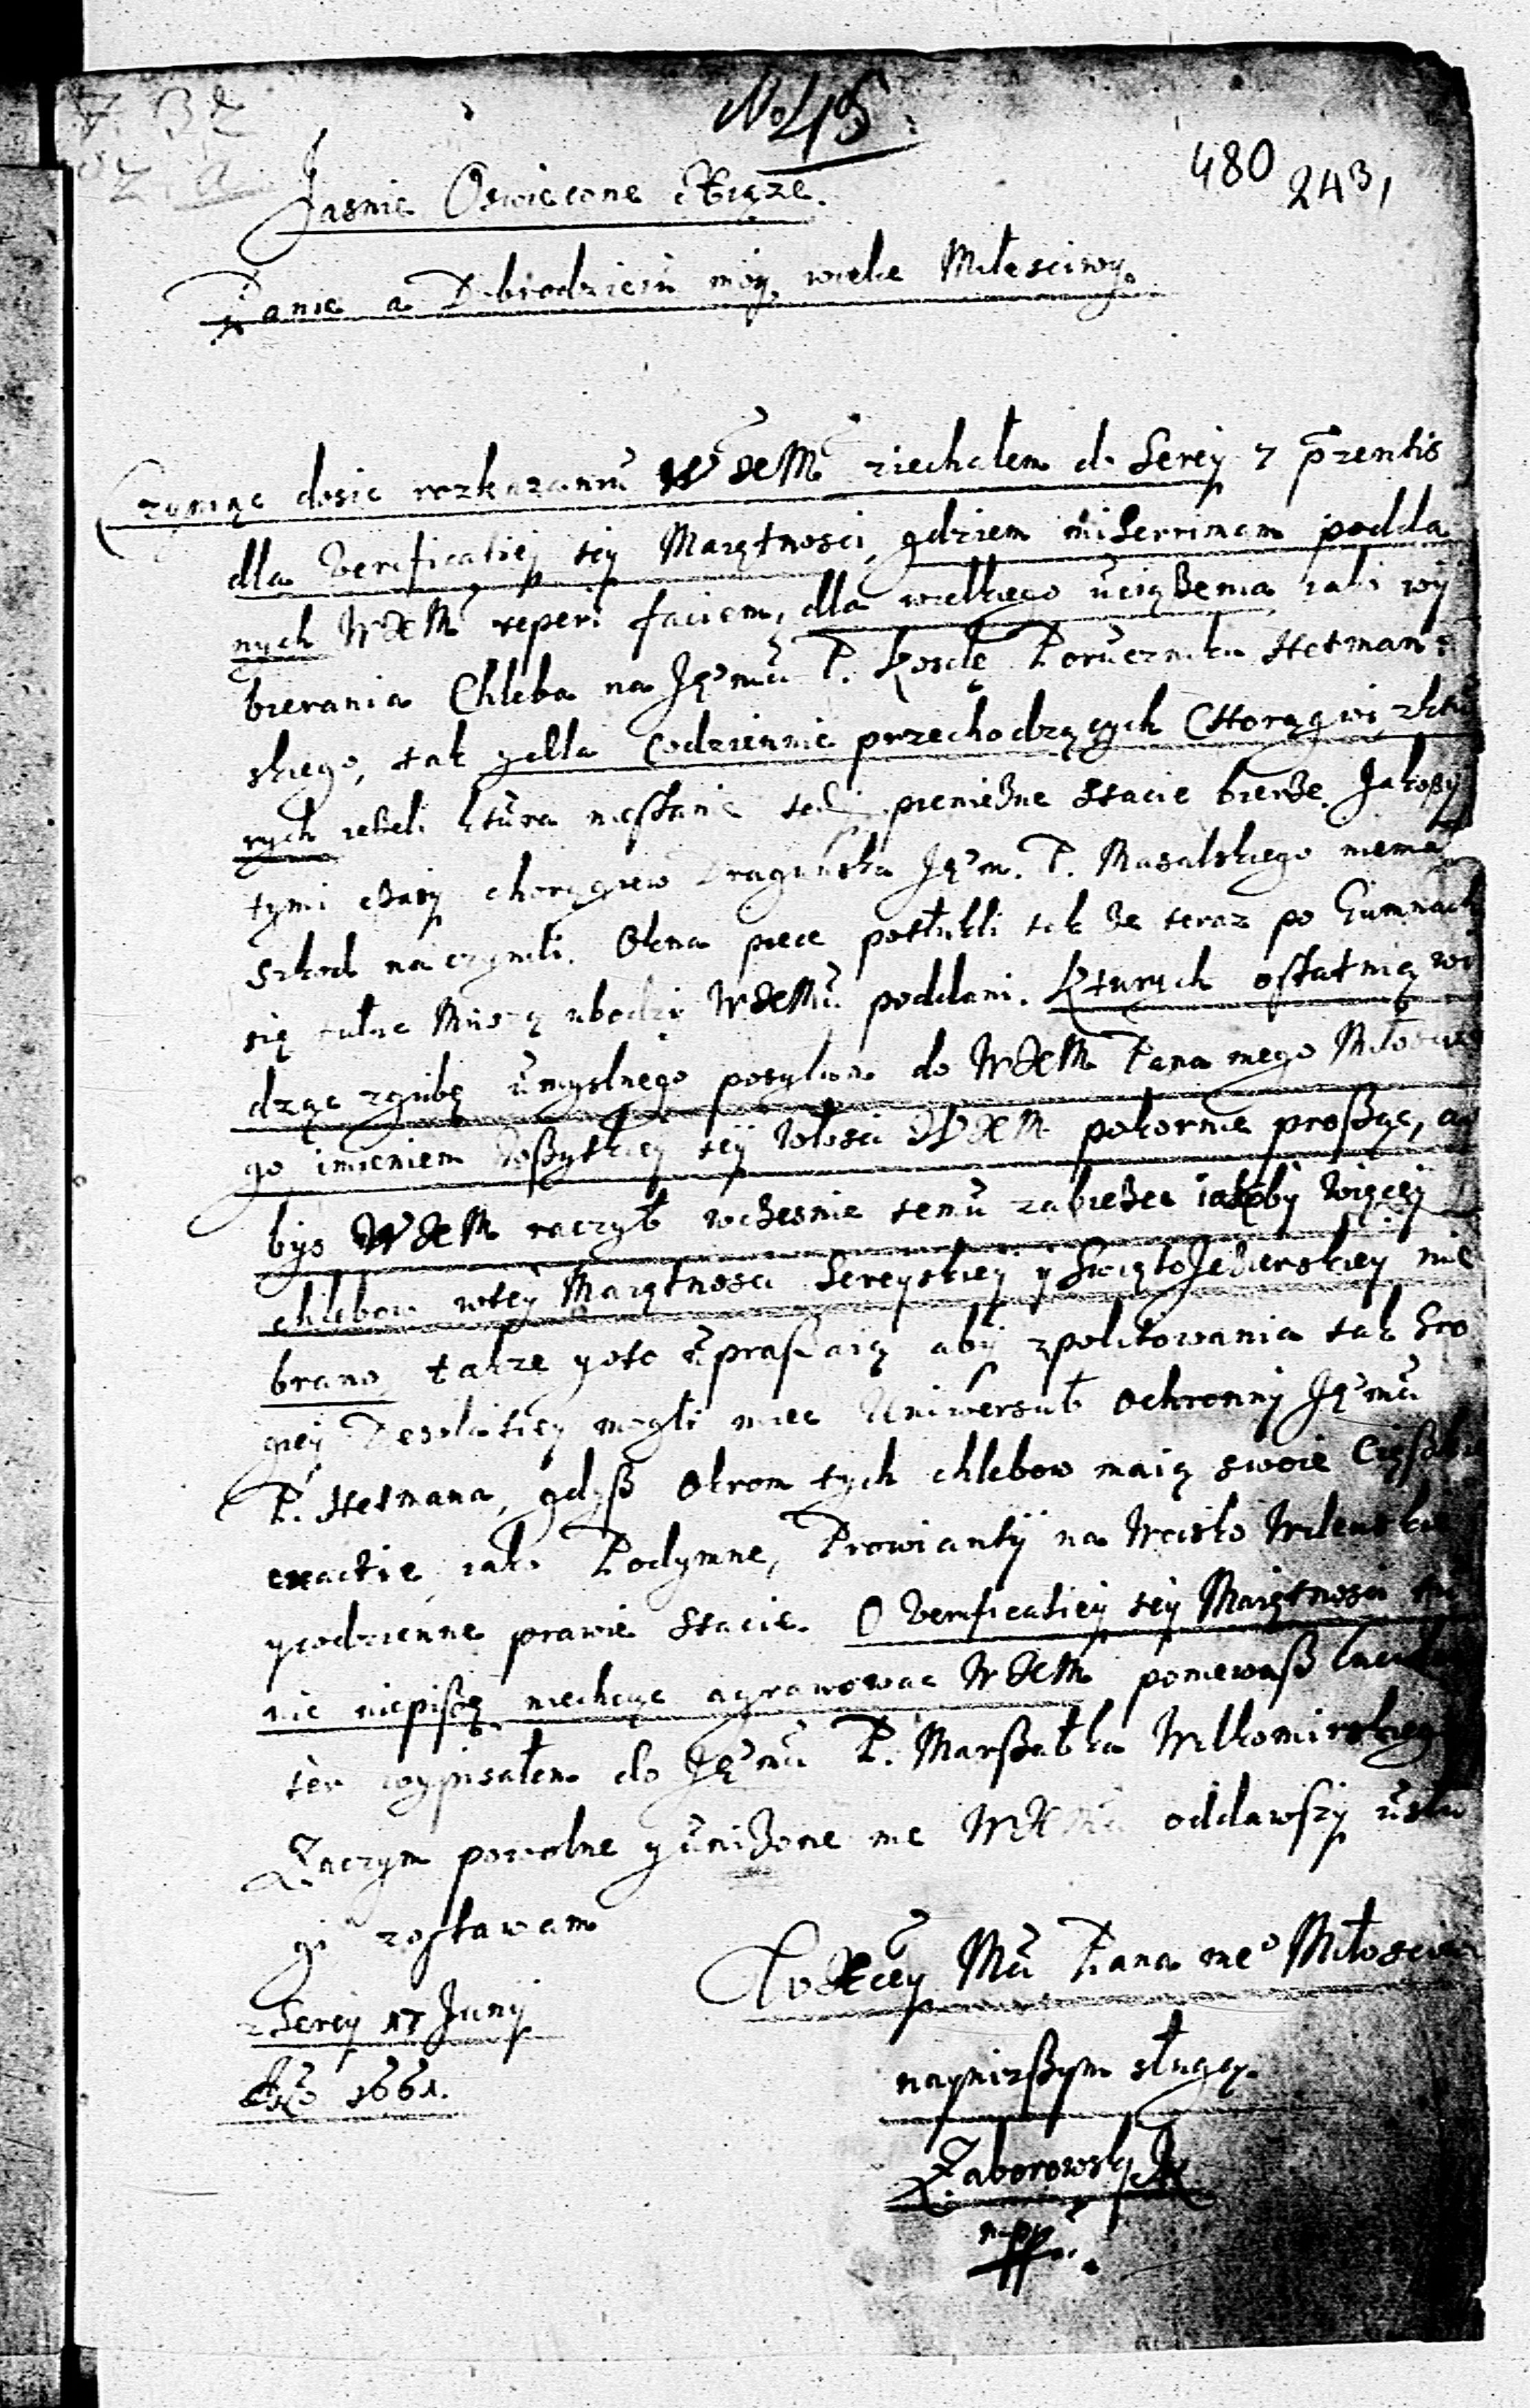 No 45
480 243
Jasnie Oswiecone Xiąze.
Panie a Dobrodzieiu moy wielce Miłosciwy.
Czyniąc dosic rozkazaniu WXM ziechałem do Serey 7 przentis
dla Verificatiey tey Maiętnosci, gdziem miserrimam podda
nych WXM reperi faciem, dla wielkiego uciąßenia iako wy
bierania Chleba na Je mu P. Porucznika Hetman
skiego, tak y dla Codziennie przechodzących Chorągwi, z ktu
rych ieżeli ktura nie pienieżne Stacie bierże. Jakoß y
tymi cżasy chorągiew Dragunska Je m. P. Masalskiego niemało
szkod na czynili. Okna piece potłukli tak że teraz po Gumnach
się tułac Muszą ubodzy WXMu poddani. Kturych ostatnią wi
dząc zgubę umyslnego posyłam do WXM Pana mego Miłosciwe
go imieniem wszytkiey tey Włosci WXM pokornie proßąc, a
bys WXM raczył wcżesnie temu zabieżec iakoby więcey
chlebow w tey Maiętnosci Sereyskiey y Swięto Jezierskiey nie
brano, takze y o to upraszaią aby z politowania tak Sro
giey Desolatiey mogli miec Uniwersał ochronny Je mu
P. Hetmana, gdyß okrom tych chlebow maią swoie Cięßkie
exactie iako Podymne, Prowianty na Woisko Wilenskie
y codzienne prawie Stacie. O Verificatiey tey Maiętnosci tu
nic niepiszę niechcąc agrawowac WXM poniewaß
ter wypisałem do Je mu P. Marßałka Wilkomirskiego
Zaczym powolne y uniżone me WXMu oddawszy usłu
gi zostawam
WXcey Mu Pana meo Miłosciwe
z Serey 17 Junij
Ao 1661.
nayniżßym sługą.
Zaborowsky
mpp